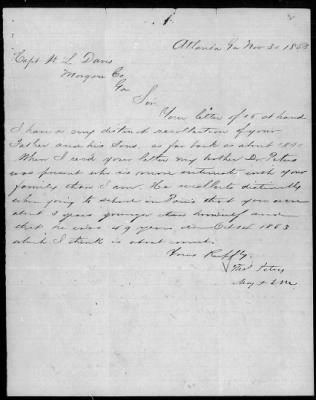 Atlanta Ga Nov 30 1863
Capt N. L Davis
Morgan Co,
Ga
Sir
Your letter of 15 at hand
I have a very distinct recollection of your
Father and his Sons, as far back as about
When I recd your letter my brother Dr Peters
was present who is more intimate with your
family than I am. He recollects distinctly
when going to school in that you were
about 3 years younger than himself and
that he was 49 years, in Oct 24 1863
which I think is about correct.
Yours Respfly,
Thos Peters
Maj &